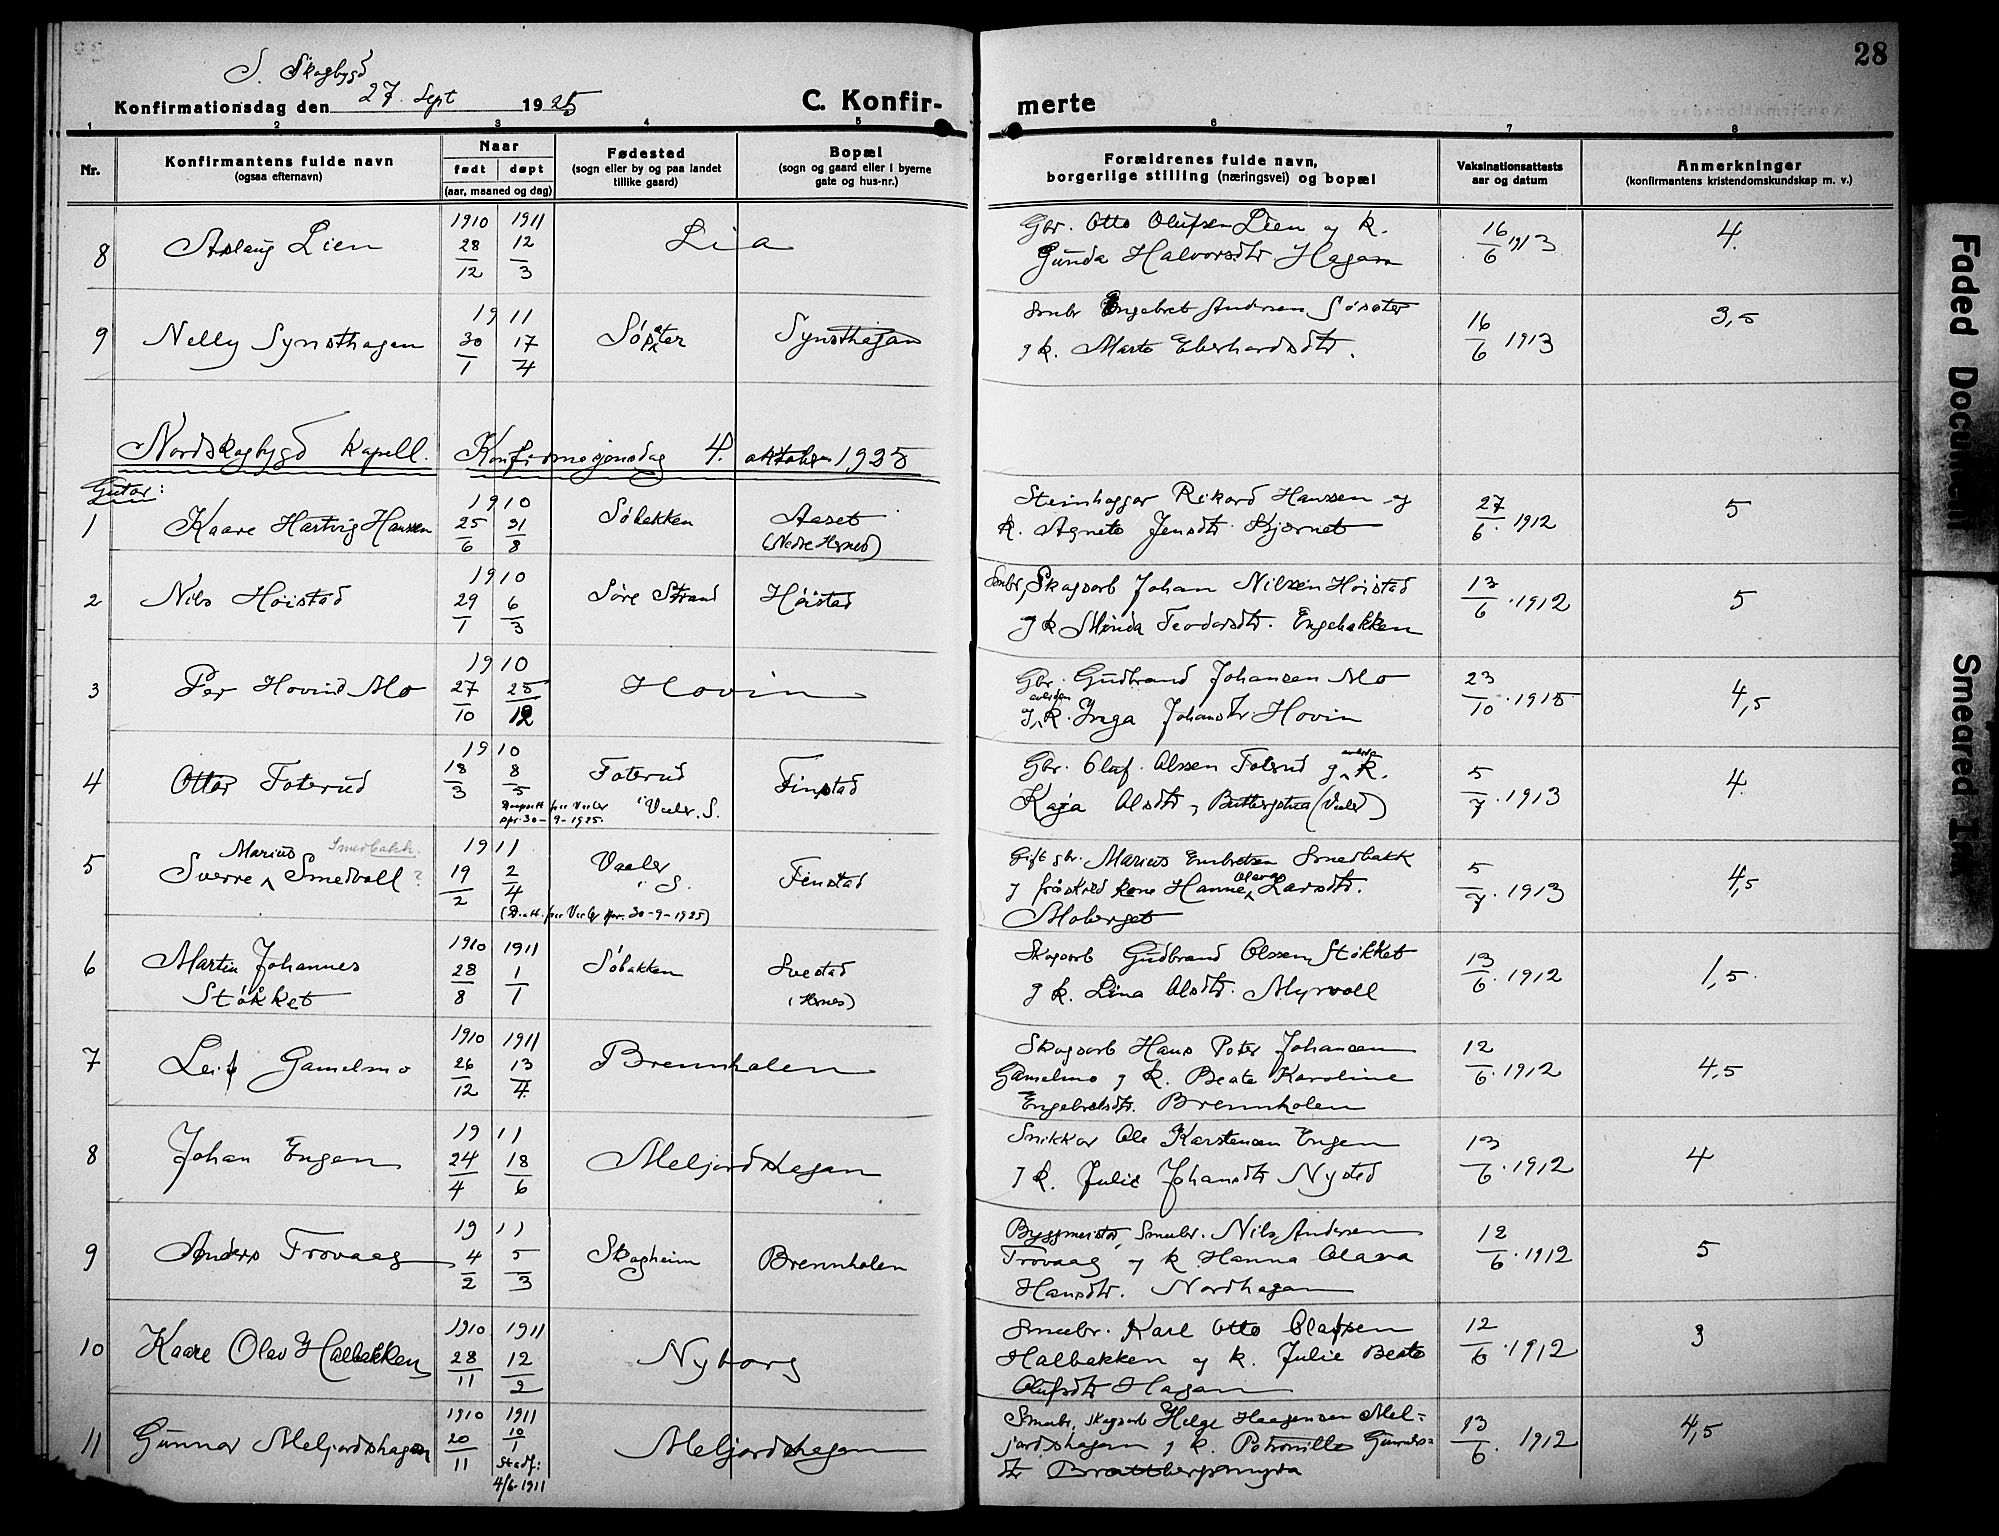 28
S. Skogbygd
Konfirmationsdag den 27. Sept 1925
C. Konfir-
merte
1 2 3 4 5 6 7 8
Nr.
Konfirmantens fulde navn
(ogsaa efternavn)
Naar
født døpt
(aar, maaned og dag)
Fødested
(sogn eller by og paa landet
tillike gaard)
Bopæl
(sogn og gaard eller i byerne
gate og hus-nr.)
Forældrenes fulde navn,
borgerlige stilling (næringsvei) og bopæl
Vaksinationsattests
aar og datum
Anmerkninger
(konfirmantens kristendomskundskap m. v.)
8 Aslaug Lien 1910 28/12 1911 12/3 Lia
Gbr. Otto Olufsen Lien og k.
Gunda Halvorsdtr Hagan
16/6 1913
4.
9 Nelly Synsthagen 1911 30/1 17/4 Søsæter Synsthagan
Smbr Engebret Andersen Søsæter
g k. Marte Eberhardsdtr.
16/6 1913
3,5
Nordskogbygd kapell. Konfirmasjonsdag 4. oktober 1925
Gutar:
1 Kaare Hartvig Hansen 1910 25/6 21/8 Søbakken Aaset
(Nedre Hernes)
Steinhoggar Rikard Hanssen og
k. Agnete Jensdtr. Kjernet
27/6. 1912
5
2 Nils Høistad 1910 29/1 6/3 Søre Strand Høistad
Smbr, Skogsarb Johan Nilssen Høistad
g k Minda Teodorsdtr. Engebakken
13/6. 1912
5
3 Per Hovind Mo 1910 27/10 25/12 Hovin
Gbr. Gudbrand Johansen Mo
g avliden k. Inga Johansdtr Hovin
23/10. 1915
4,5
4 Ottar Foterud 1910 18/3 8/5 Foterud i Vaaler. S. Finstad
9-1925.
Gbr. Oluf. Olssen Foterud g k.
Kaja Olsdtr,
5/7. 1913
4
5 Sverre Marius Smedvoll? Smedbakk. 1911 19/2 2/4 Vaaler i S. Finstad
30-9-1925)
Gift gbr. Marius Embretsen Smedbakk
g fråskred kone Hanne Olava Larsdtr.
Moberget
5/7. 1913
4,5
6 Martin Johannes
Støkket 1910 28/8 1911 1/1 Søbakken Svestad
(Hernes)
Skogsarb Gudbrand Olssen Støkket
g k. Lina Olsdtr. Myrvoll
13/6. 1912
1,5
7 Leif Gamelmo 1910 26/12 1911 13/4 Brennholen
Skogsarb Hans Peter Johansen
Gamelmo g k. Beate Karoline
Engebretsdtr. Brennholen
12/6. 1912
4,5
8 Johan Engen 1911 24/4 18/6 Meljordshagan
Snikkar Ole Karstensen Engen
g k. Julie Johansdtr Nysted
13/6. 1912
4
9 Anders Trovaag 1911 4/2 5/3 Skogheim Brennholen
Byggmeister, Smbr. Nils Andersen
Trovaag g k. Hanna Olava
Hansdtr. Nordhagan
12/6. 1912
5
10 Kaare Olav Halbakken 1910 28/11 1911 12/2 Nyborg
Smbr. Karl Otto Olafsen
Halbakken og k. Julie Beate
Olufsdtr Hagan
12/6. 1912
3
11 Gunnar Meljordshagen 1910 20/11 1911 10/1 Stadf: 4/6-1911 Meljordshagen
Smbr, skogsarb Helge Haagensen Mel-
jordshagen g k. Petronille Gunders-
dtr Brattbergsmyra
13/6. 1912
4,5
Faded Document
Smeared Ink